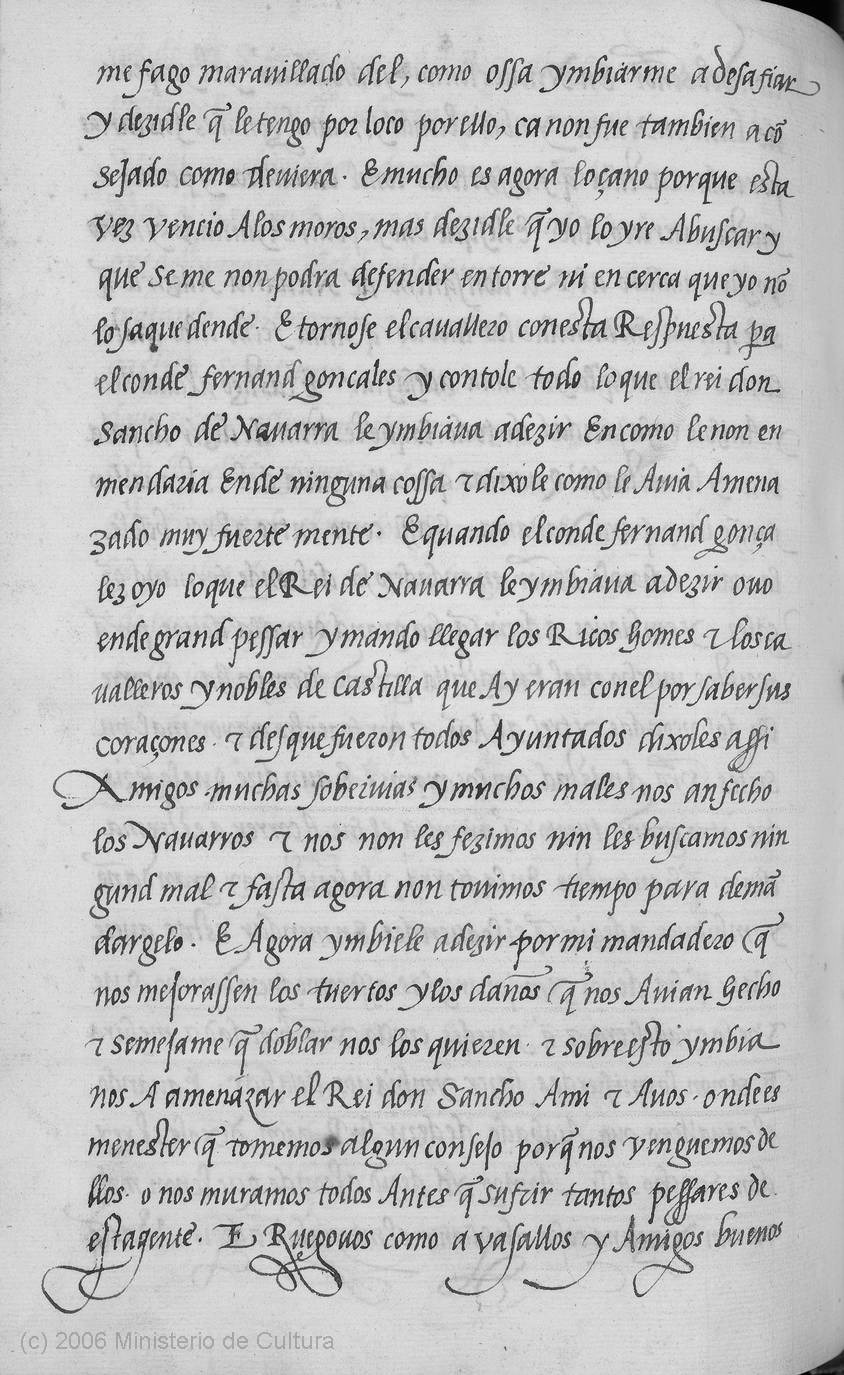 me fago marauillado del, como ossa ymbiarme adesafiar
y dezidle q̃ le tengo por loco por ello, ca non fue tambien acõ
sejado como deuiera. E mucho es agora loçano porque esta
vez vencio Alos moros, mas dezidle q̃ yo lo yre Abuscar y
que se me non podra defender en torre ni en cerca que yo nõ
lo saque dende. E tornose el cauallero con esta Respuesta pa
el conde fernand goncales y contole todo lo que el rei don
Sancho de Nauarra le ymbiaua adezir En como le non en
mendaria Ende ninguna cossa τ dixole como le Auia Amena
zado muy fuerte mente. E quando el conde fernand gonça
lez oyo lo que el Rei de Nauarra le ymbiaua adezir ouo
ende grand pessar y mando llegar los Ricos homes τ los ca
ualleros y nobles de Castilla que Ay eran con el por saber sus
coraçones. τ desque fueron todos Ayuntados dixoles assi
Amigos muchas soberuias y muchos males nos an fecho
los Nauarros τ nos non les fezimos nin les buscamos nin
gund mal τ fasta agora non touimos tiempo para demã
dargelo. E Agora ymbiele adezir por mi mandadero q̃
nos mejorassen los tuertos y los daños q̃ nos Auian hecho
τ semejame q̃ doblar nos los quieren. τ sobre esto ymbia
nos A amenazar el Rei don Sancho Ami τ Auos. onde es
menester q̃ tomemos algun consejo porq̃ nos venguemos de
llos. o nos muramos todos Antes q̃ sufrir tantos pessares de
esta gente. E Ruegouos como a vasallos y Amigos buenos
(c) 2006 Ministerio de Cultura